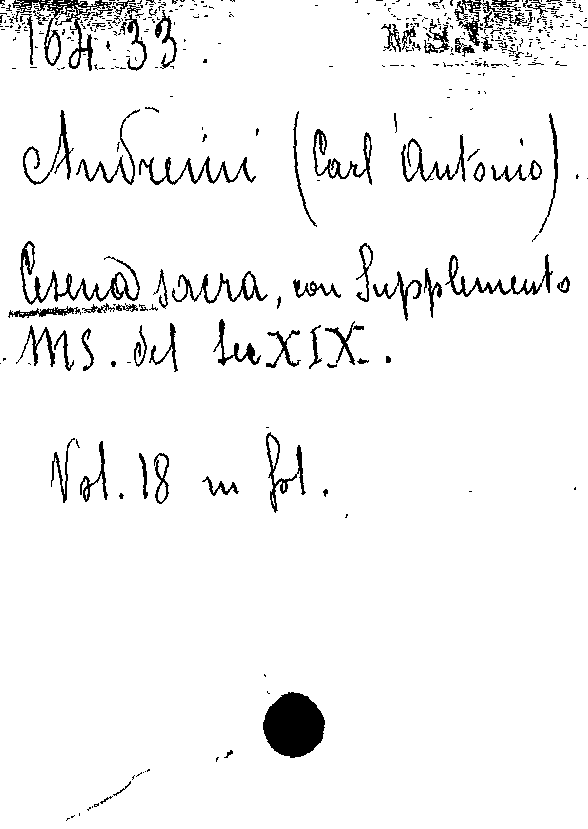 164.33.
MSS.
Andreini (Carl'Antonio).
Cesena sacra, con Supplemento
MS. del Sec XIX.
Vol. 18 in fol.